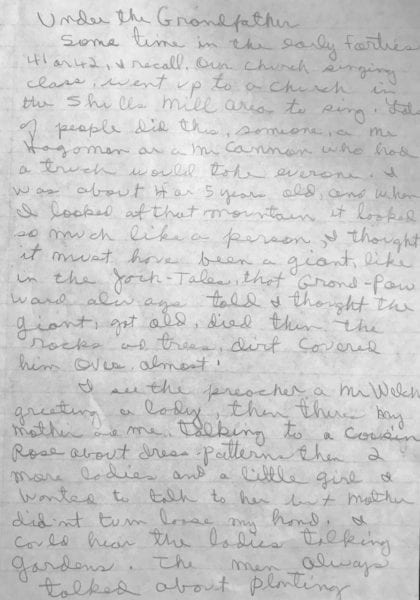 Under the Grandfather
Some time in the early forties
41 or 42, I recall. Our church singing
class, went up to a church in
the Shulls Mill area to sing. Lots
of people did this, someone, a Mr
Hagaman or a Mr Cannon who had
a truck would take everone. I
was about 4 or 5 years old, and when
I looked at that mountain it looked
so much like a person, I thought
it must have been a giant, like
in the Jack-Tales, that Grand-Paw
Ward always told I thought the
giant, got old, died then the
rocks ad trees, dirt covered
him over, almost!
I see the preacher a Mr Welch
greeting a lady, then theres my
mother and me talking to a cousin
Rose about dress-patterns then 2
more ladies and a little girl I
wanted to talk to her but mother
didnt turn loose my hand. I
could hear the ladies talking
gardens. The men always
talked about planting